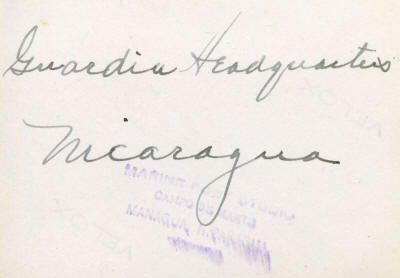 Guardia Headquarters
Nicaragua
MARINE
CAMPO DE MARTE
MANAGUA, NICARAGUA
VELOX
VELOX